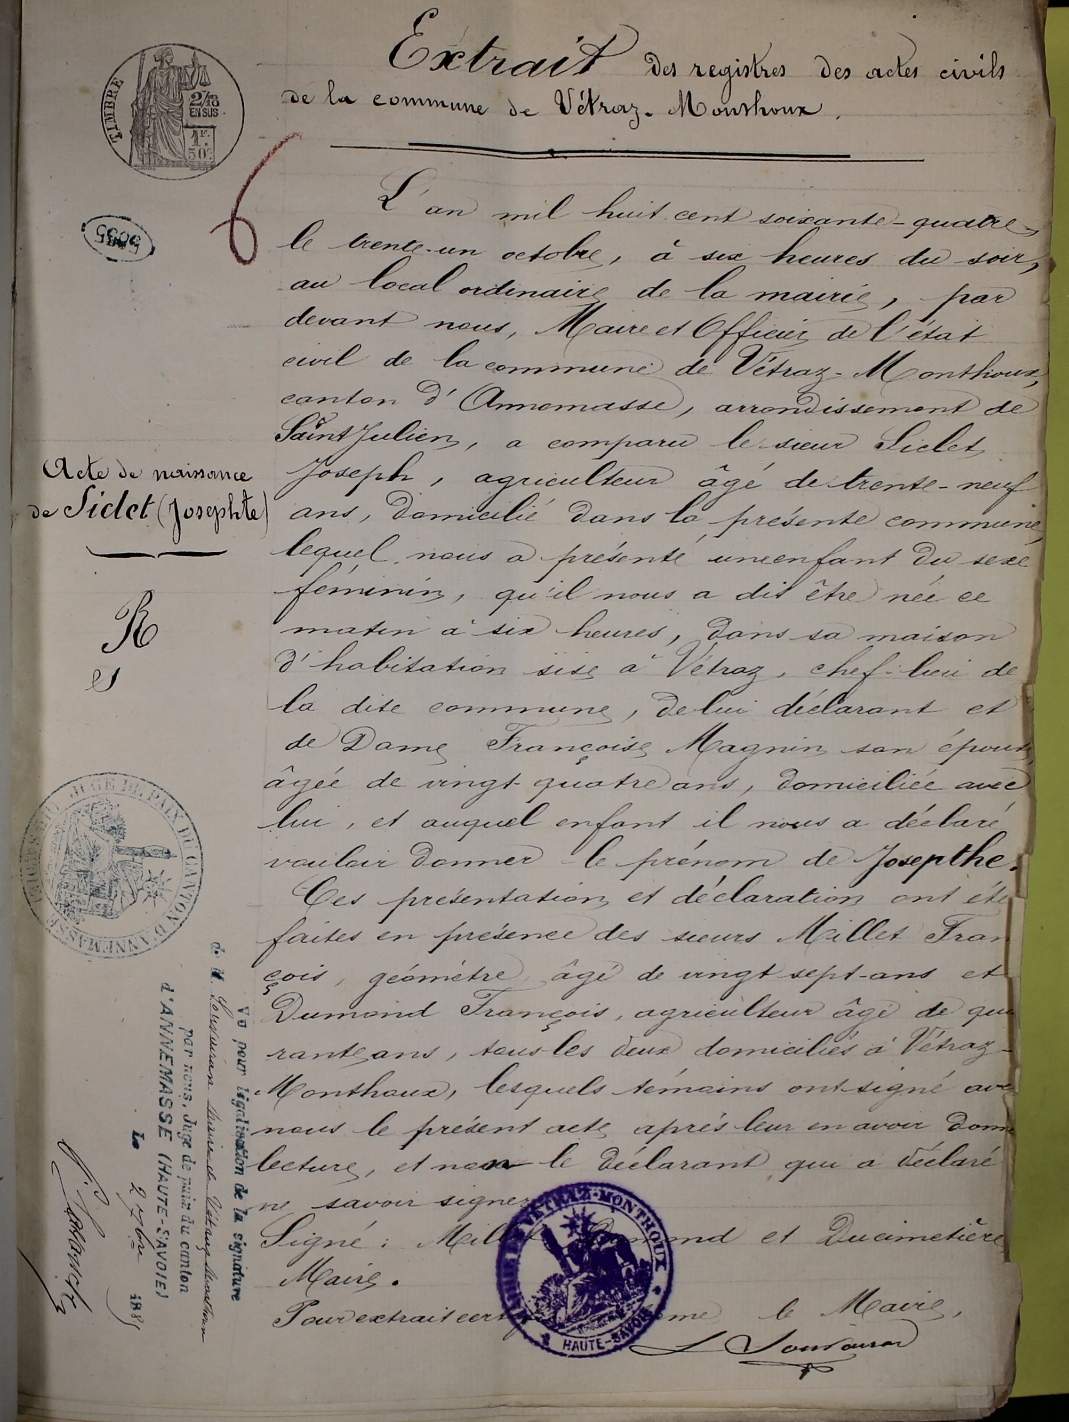 Extrait des registres des actes civils
de la commune de Vétraz-Monthoux.
TIMBRE
2/10
EN SUS
1F.
50c
5035
6
L'an mil huit cent soixante-quatre,
le trente-un octobre, à six heures du soir,
au local ordinaire de la mairie, par
devant nous, Maire et Officier de l'état
civil de la commune de Vétraz-Monthoux,
canton d'Annemasse, arrondissement de
Saint Julien, a comparu le sieur Siclet
Joseph, agriculteur âgé de trente-neuf
ans, domicilié dans la présente commune,
lequel nous a présenté une enfant du sexe
féminin, qu'il nous a dit être née ce
matin à six heures, dans sa maison
d'habitation sise à Vétraz, chef-lieu de
la dite commune, de lui déclarant et
de Dame Françoise Magnin son épouse
âgée de vingt-quatre ans, domiciliée avec
lui, et auquel enfant il nous a déclaré
vouloir donner le prénom de Josepthe.
Ces présentation et déclaration ont été
faites en présence des sieurs Millet Fran
çois, géomètre âgé de vingt-sept-ans et
Dumond François, agriculteur âgé de qua
rante ans, tous les deux domiciliés à Vétraz-
Monthoux, lesquels témoins ont signé avec
nous le présent acte après leur en avoir donné
lecture, et non le déclarant qui a déclaré
ne savoir signer
Signé : Millet Dumond et Ducimetière
Maire.
Pour extrait certifié conforme le Maire,
Acte de naissance
de Siclet (Josephte)
R
JUGE DE PAIX DU CANTON D'ANNEMASSE
Vu pour légalisation de la signature
de M. Maire de Vétraz Monthoux
par nous, Juge de paix du canton
d'ANNEMASSE (HAUTE-SAVOIE)
Le 2 7bre 188
MAIRIE DE VÉTRAZ-MONTHOUX
HAUTE-SAVOIE